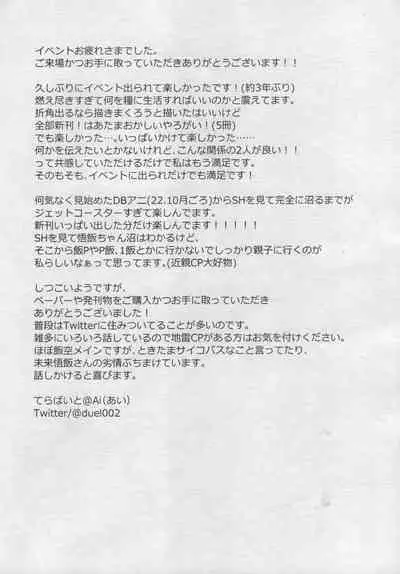 イベントお疲れさまでした。
ご来場かつお手に取っていただきありがとうございます！！
久しぶりにイベント出られて楽しかったです！(約3年ぶり)
燃え尽きすぎて何を糧に生活すればいいのかと震えてます。
折角出るなら描きまくろうと描いたはいいけど
全部新刊！はあたまおかしいやろがい！(5冊)
でも楽しかった…。いっぱいかけて楽しかった……
何かを伝えたいとかないけれど、こんな関係の2人が良い！！
って共感していただけるだけで私はもう満足です。
そのもそも、イベントに出られただけでも満足です！
何気なく見始めたDBアニ(22.10月ごろ)からSHを見て完全に沼るまでが
ジェットコースターすぎて楽しんでます。
新刊いっぱい出した分だけ楽しんでます！！！！！
SHを見て悟飯ちゃん沼はわかるけど、
そこから飯PやP飯、1飯とかに行かないでしっかり親子に行くのが
私らしいなぁって思ってます。(近親CP大好物)
しつこいようですが、
ペーパーや発刊物をご購入かつお手に取っていただき
ありがとうございました！
普段はTwitterに住みついてることが多いのです。
雑多にいろいろ話しているので地雷CPがある方はお気を付けください。
ほぼ飯空メインですが、ときたまサイコパスなこと言ってたり、
未来悟飯さんの劣情ぶちまけています。
話しかけると喜びます。
てらばいと@Ai(あい)
Twitter/@duel002